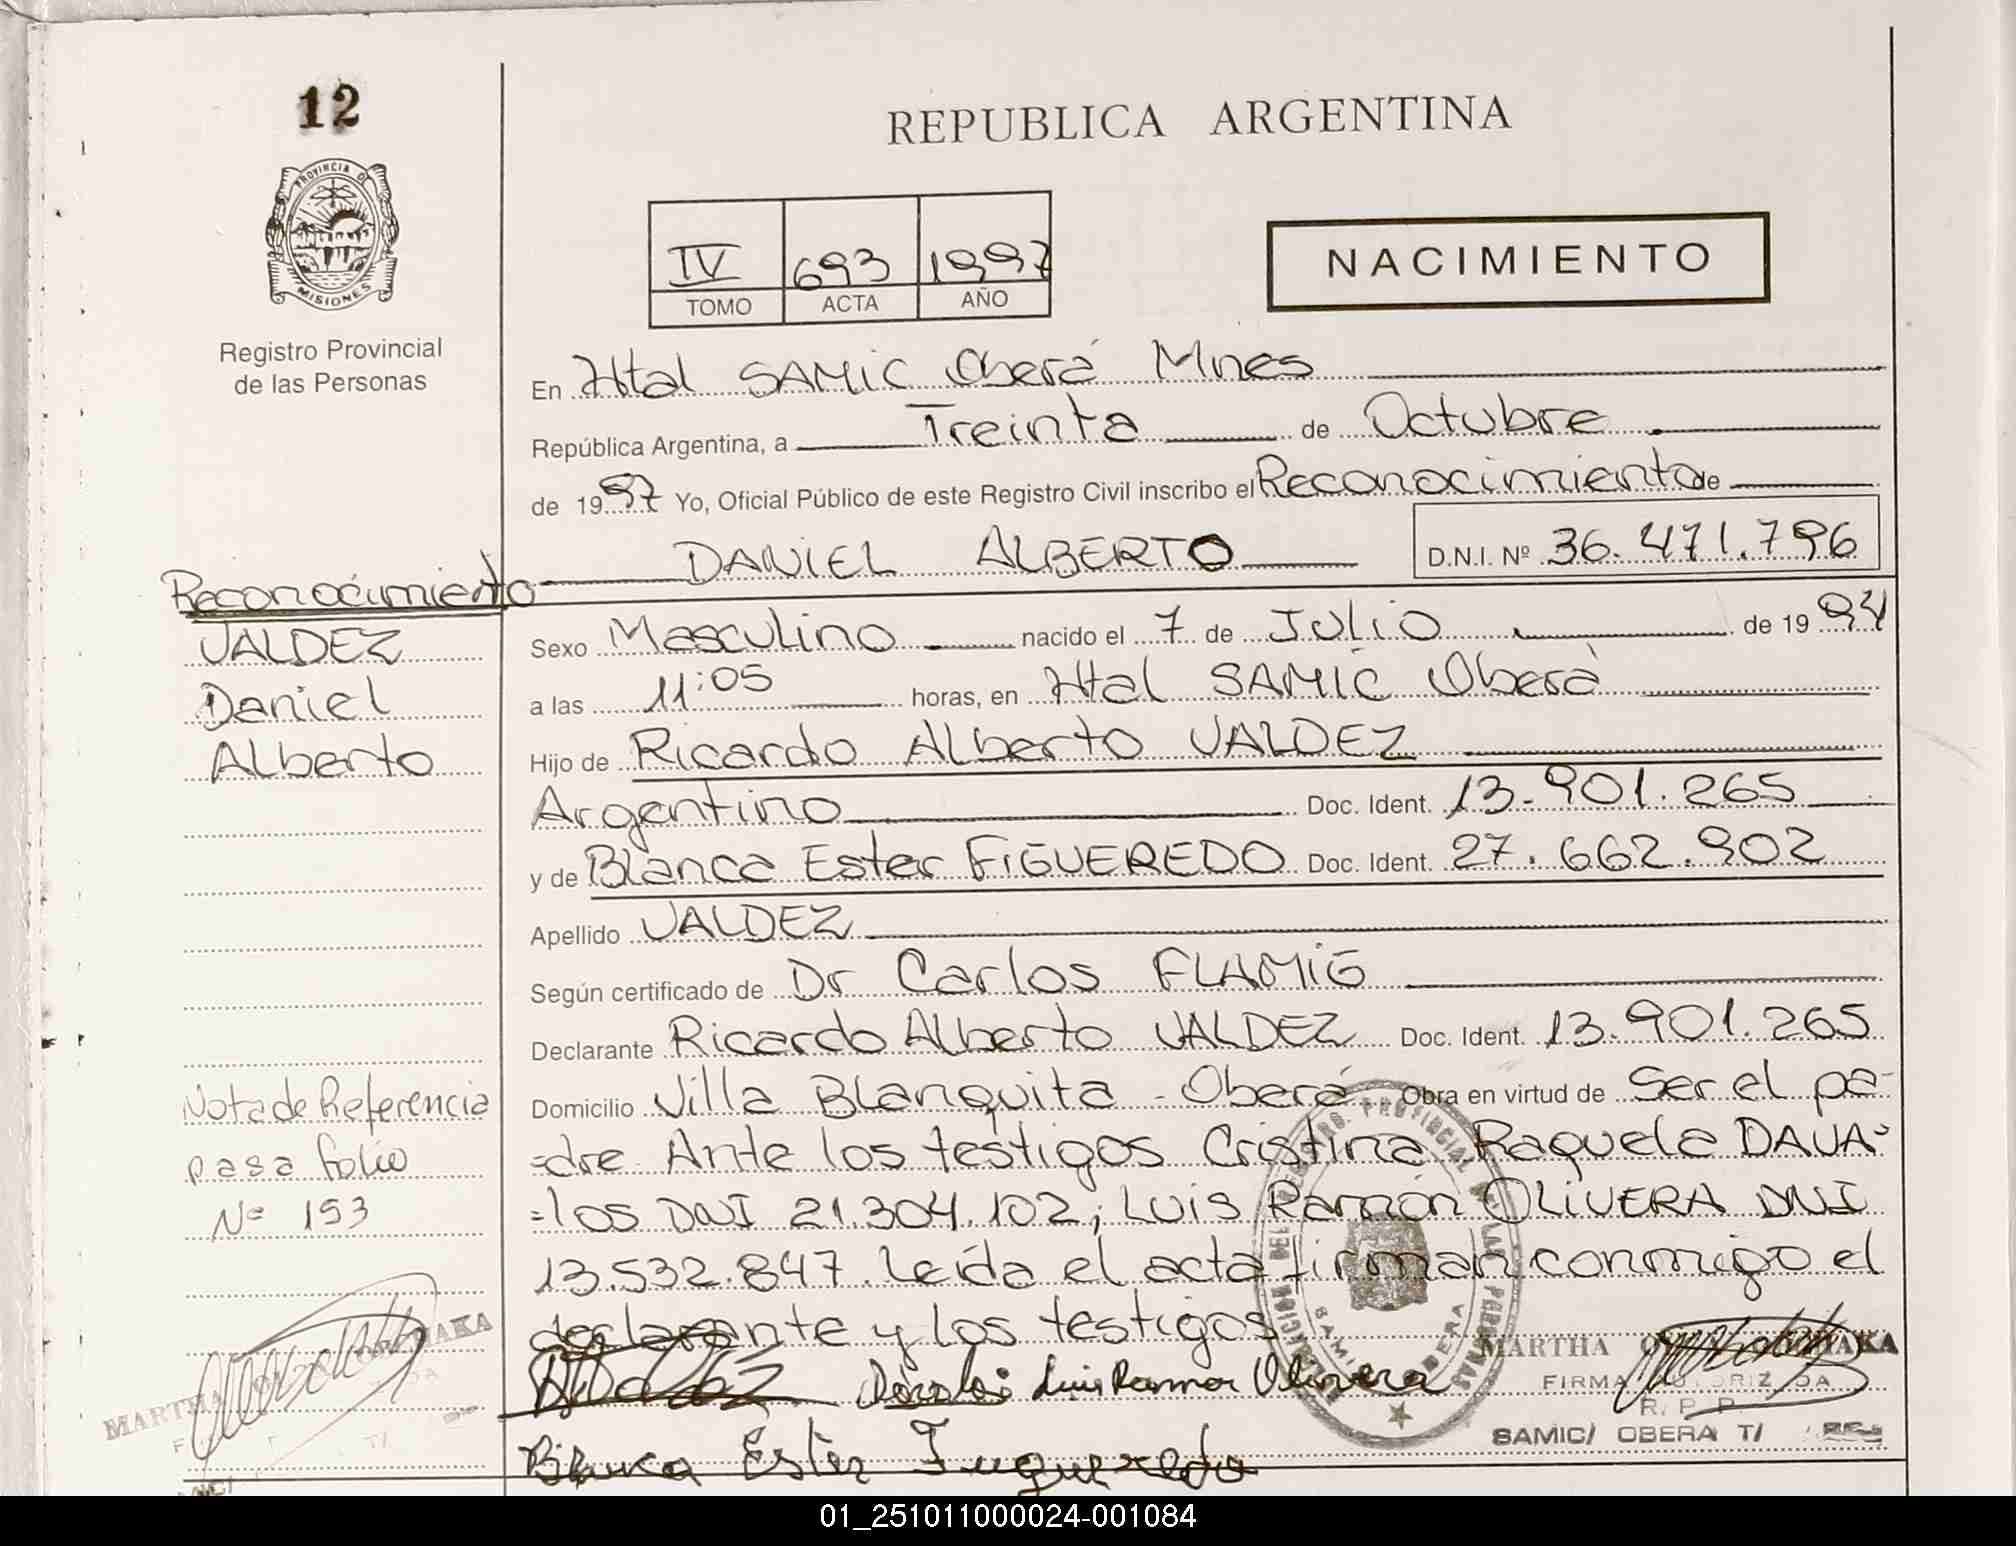 12
PROVINCIA D
MISIONES
Registro Provincial
de las Personas
REPUBLICA ARGENTINA
IV 693 1997
TOMO ACTA AÑO
NACIMIENTO
En Htal SAMIC Oberá Mnes
República Argentina, a Treinta de Octubre
de 1997 Yo, Oficial Público de este Registro Civil inscribo el Reconocimiento de
DANIEL ALBERTO D.N.I. Nº 36.471.796
Reconocimiento
VALDEZ
Daniel
Alberto
Sexo Masculino nacido el 7 de Julio de 1994
a las 11:05 horas, en Htal SAMIC Oberá
Hijo de Ricardo Alberto VALDEZ
Argentino Doc. Ident. 13.901.265
y de Blanca Ester FIGUEREDO Doc. Ident. 27.662.902
Apellido VALDEZ
Según certificado de Dr Carlos FLAMIG
Declarante Ricardo Alberto VALDEZ Doc. Ident. 13.901.265
Domicilio Villa Blanquita - Oberá Obra en virtud de Ser el pa-
=dre Ante los testigos Cristina Raquela DAVA=
=los DNI 21.304.102; Luis Ramón OLIVERA DNI
13.532.847. Leída el acta firman conmigo el
declarante y los testigos
Nota de Referencia
pasa folio
Nº 153
Luis Ramon Olivera
Blanca Ester Figueredo
MARTHA
FIRMA AUTORIZADA
R. P. P.
SAMIC/ OBERA T/
MARTHA
01_251011000024-001084